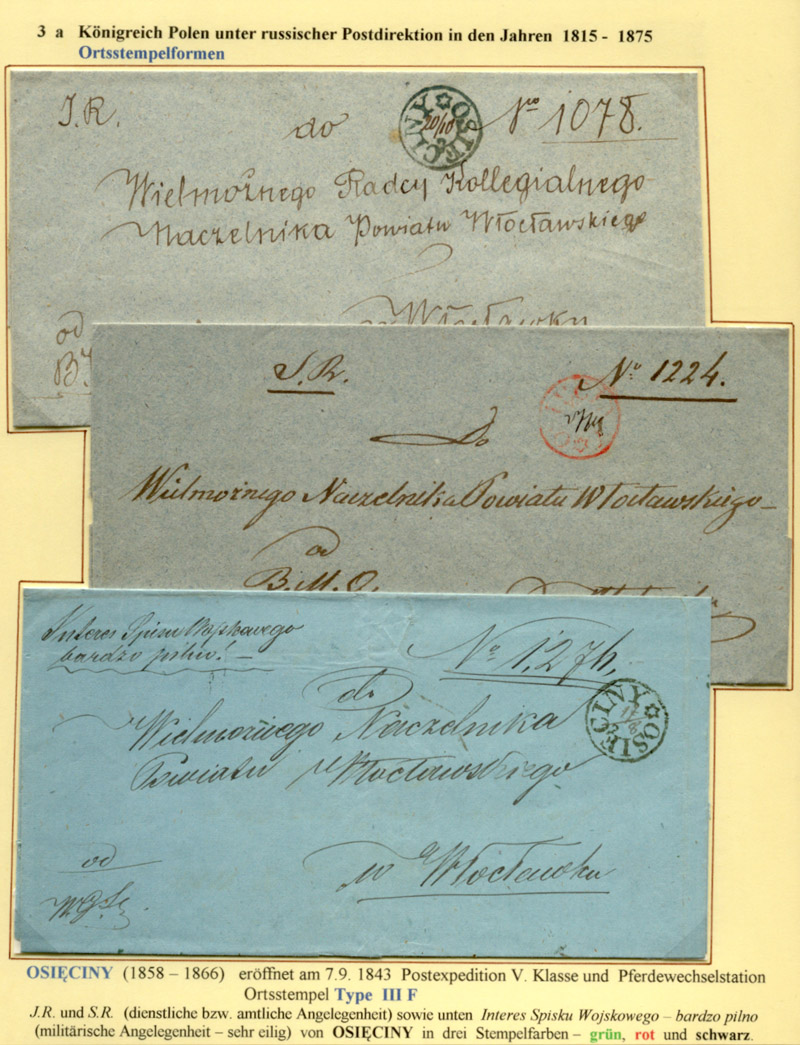 3 a Königreich Polen unter russischer Postdirektion in den Jahren 1815 - 1875
Ortsstempelformen
J.R.
do
OSIĘCINY
20/10
No 1078.
Wielmożnego Radcy Kollegialnego
Naczelnika Powiatu Włocławskiego
w Włocławku
od
S.R.
No 1224.
Do
Wielmożnego Naczelnika Powiatu Włocławskiego
od
B.M.O.
Interes Spisu Wojskowego
bardzo pilno!
No 1,276.
do
OSIĘCINY
Wielmożnego Naczelnika
Powiatu Włocławskiego
od
w Włocławku
OSIĘCINY (1858 – 1866) eröffnet am 7.9. 1843 Postexpedition V. Klasse und Pferdewechselstation
Ortsstempel Type III F
J.R. und S.R. (dienstliche bzw. amtliche Angelegenheit) sowie unten Interes Spisku Wojskowego – bardzo pilno
(militärische Angelegenheit – sehr eilig) von OSIĘCINY in drei Stempelfarben – grün, rot und schwarz.